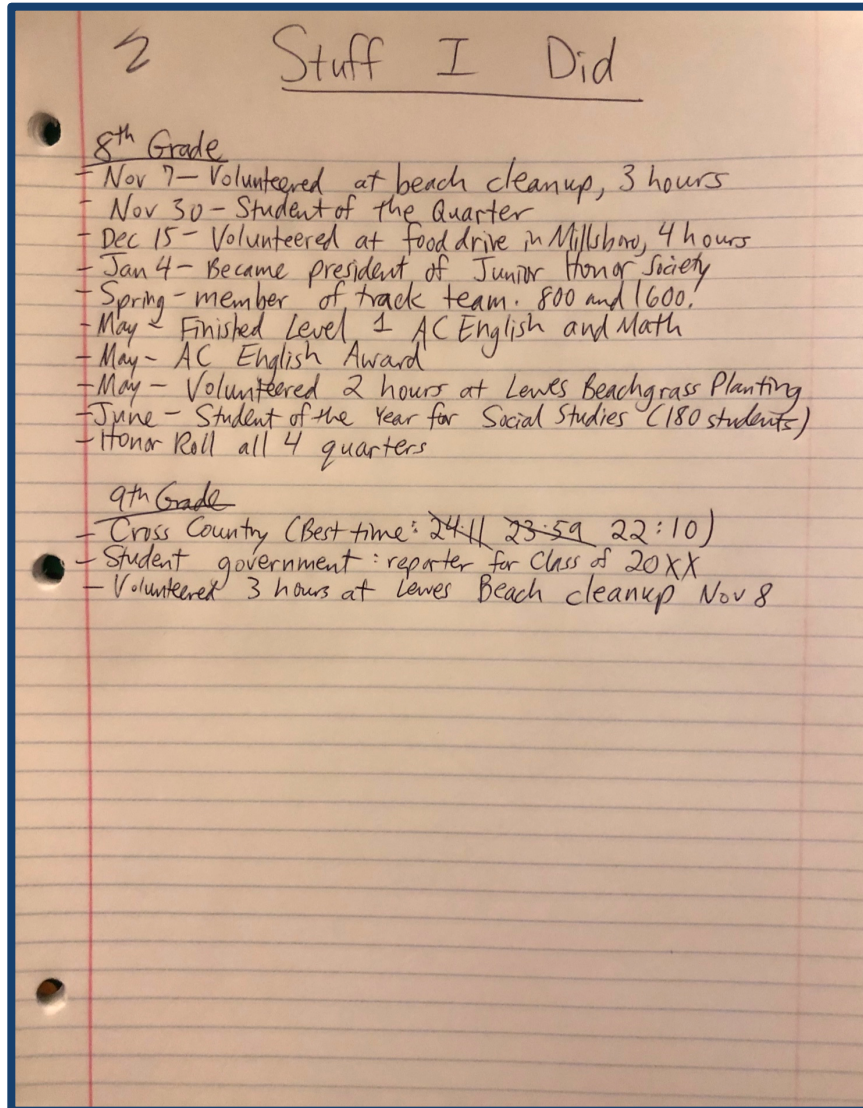 2 Stuff I Did
8th Grade
- Nov 7 - Volunteered at beach cleanup, 3 hours
- Nov 30 - Student of the Quarter
- Dec 15 - Volunteered at food drive in Millsboro, 4 hours
- Jan 4 - Became president of Junior Honor Society
- Spring - member of track team. 800 and 1600.
- May - Finished Level 1 AC English and Math
- May - AC English Award
- May - Volunteered 2 hours at Lewes Beachgrass Planting
- June - Student of the Year for Social Studies (180 students)
- Honor Roll all 4 quarters
9th Grade
- Cross Country (Best time: 24:11 23:59 22:10)
- Student government: reporter for Class of 20XX
- Volunteered 3 hours at Lewes Beach cleanup Nov 8